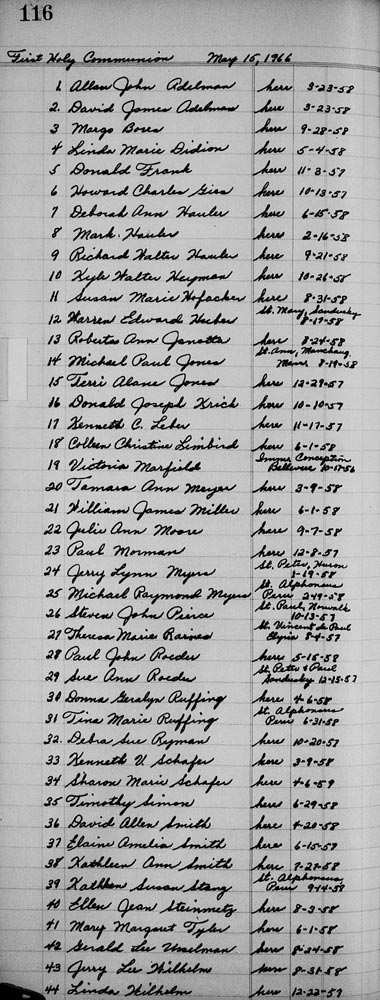 116
First Holy Communion May 15, 1966
1. Allan John Adelman here 3-23-58
2. David James Adelman here 3-23-58
3 Margo Bores here 9-28-58
4 Linda Marie Didion here 5-4-58
5 Donald Frank here 11-3-57
6 Howard Charles Gies here 10-13-57
7 Deborah Ann Hauler here 6-15-58
8 Mark Hauler here 2-16-58
9 Richard Walter Hauler here 9-21-58
10 Kyle Walter Heyman here 10-26-58
11 Susan Marie Hofacker here 8-31-58
12 Warren Edward St. Mary, Sandusky
8-17-58
13 Roberta Ann Janotta here 8-24-58
14 Michael Paul Jones St. Ann, Manchaug
Mass 8-19-58
15 Terri Alane Jones here 12-29-57
16 Donald Joseph Krich here 10-10-57
17 Kenneth C. Leber here 11-17-57
18 Colleen Christine Limbird here 6-1-58
19 Victoria Marfield Conception
Bellevue 10-17-56
20 Tamara Ann Meyer here 3-9-58
21 William James Miller here 6-1-58
22 Julie Ann Moore here 9-7-58
23 Paul Morman here 12-8-57
24 Jerry Lynn Myers St. Peter, Huron
1-19-58
25 Michael Raymond Meyers St. Alphonsus
Peru 2-19-58
26 Steven John Pierce St. Paul, Norwalk
10-13-57
27 Theresa Marie Raines St. Vincent de Paul
Elyria 8-4-57
28 Paul John Roeder here 5-18-58
29 Sue Ann Roeder St Peter & Paul
Sandusky 12-15-57
30 Donna Geralyn Ruffing here 4-6-58
31 Tina Marie Ruffing St. Alphonsus
Peru 6-31-58
32. Debra Sue Ryman here 10-20-57
33 Kenneth V Schafer here 3-9-58
34 Sharon Marie Schafer here 4-6-59
35 Timothy Simon here 6-29-58
36 David Allen Smith here 4-20-58
37 Elaine Amelia Smith here 6-15-59
38 Kathleen Ann Smith here 7-27-58
39 Kathleen Susan Stang St. Alphonsus
Peru 9-14-58
40 Ellen Jean Steinmetz here 8-3-58
41 Mary Margaret Tyler here 6-1-58
42 Gerald Lee Unselman here 8-24-58
43 Jerry Lee Wilhelm here 8-31-58
44 Linda Wilhelm here 12-22-59